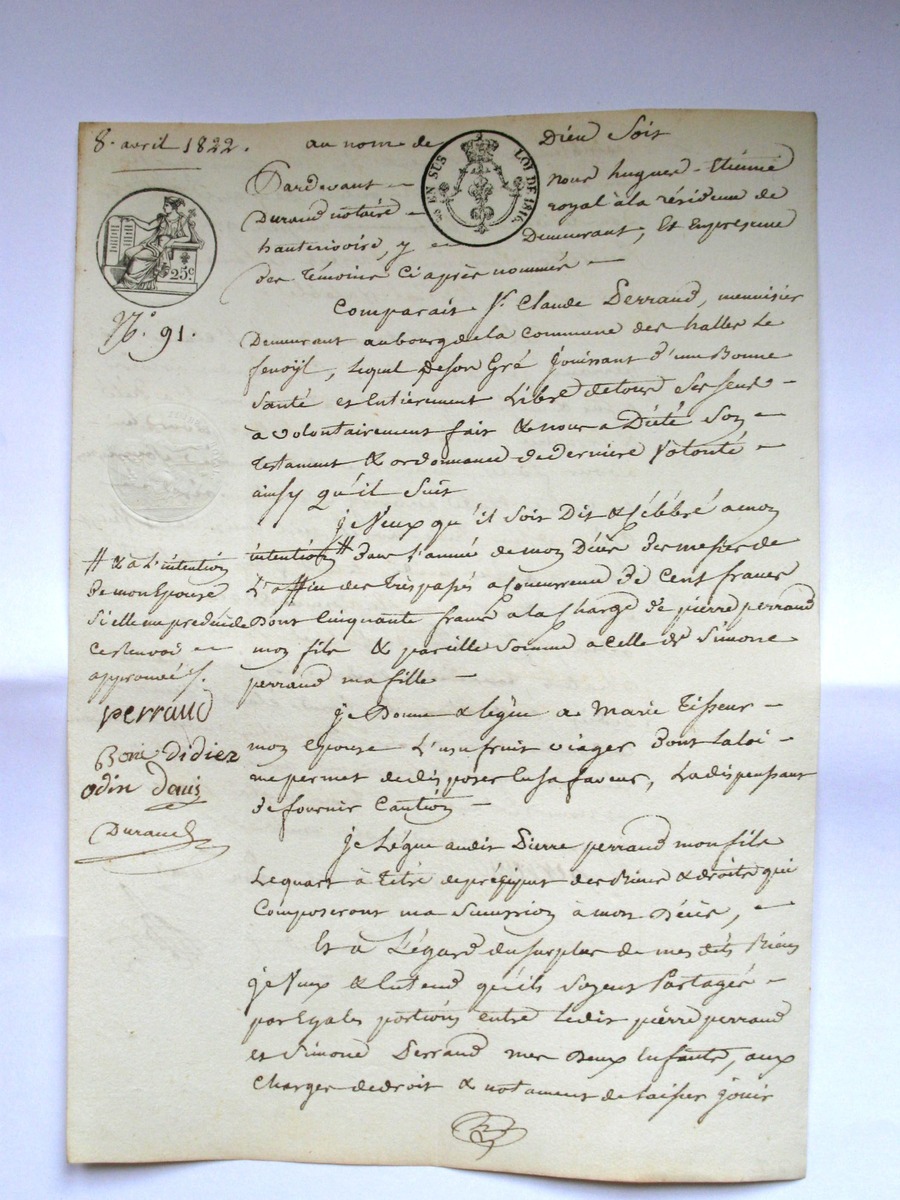 8. avril 1822.
au nom de Dieu Soit
EN SUS LOI DE 1816
25c
N.° 91.
Pardevant nous hugues Etienne
Durand notaire royal à la résidence de
hauterivoire, y Demeurant, Et En presence
des Témoins Ci après nommés
Comparait Sr. Claude Perraud, menuisier
Demeurant au bourg de la commune des halles Le
fenoÿl, Lequel de son Gré Jouissant d'une Bonne
Santé et Entièrement Libre de tous Ses Sens
à volontairement fait & nous a Dicté Son
Testament & ordonnance de derniere Volonté
ainsy qu'il Suit
je Veux qu'il Soit Dit & Célébré a mon
intention # dans l'année de mon Décès des messes de
L'office des Trespassés a Concurrence de Cent francs
Dont Cinquante francs a la Charge de pierre perraud
mon fils & pareille Somme a Celle de Simone
perraud ma fille
je Donne & legue a Marie Tisseur
mon Epouse L'usufruit viager Dont la loi
me permet de disposer En sa faveur, La dispensant
de fournir Caution
je Légue audit Pierre perraud mon fils
Le quart à Titre de préciput des Biens & droits qui
Composeront ma Succession à mon Décès,
Et à L'égard du Surplus de mes dits Biens
je Veux & Entend qu'ils Soyent Partagés
par Egales portions entre Ledit pierre perraud
et Simone Perraud mes Deux Enfants, aux
Charges de droit & notament de laisser jouir
# & à L'intention
de mon Epouse
Si elle me prédécède
Ce Renvoi
approuvé
perraud
Didier
odin Denis
Durand